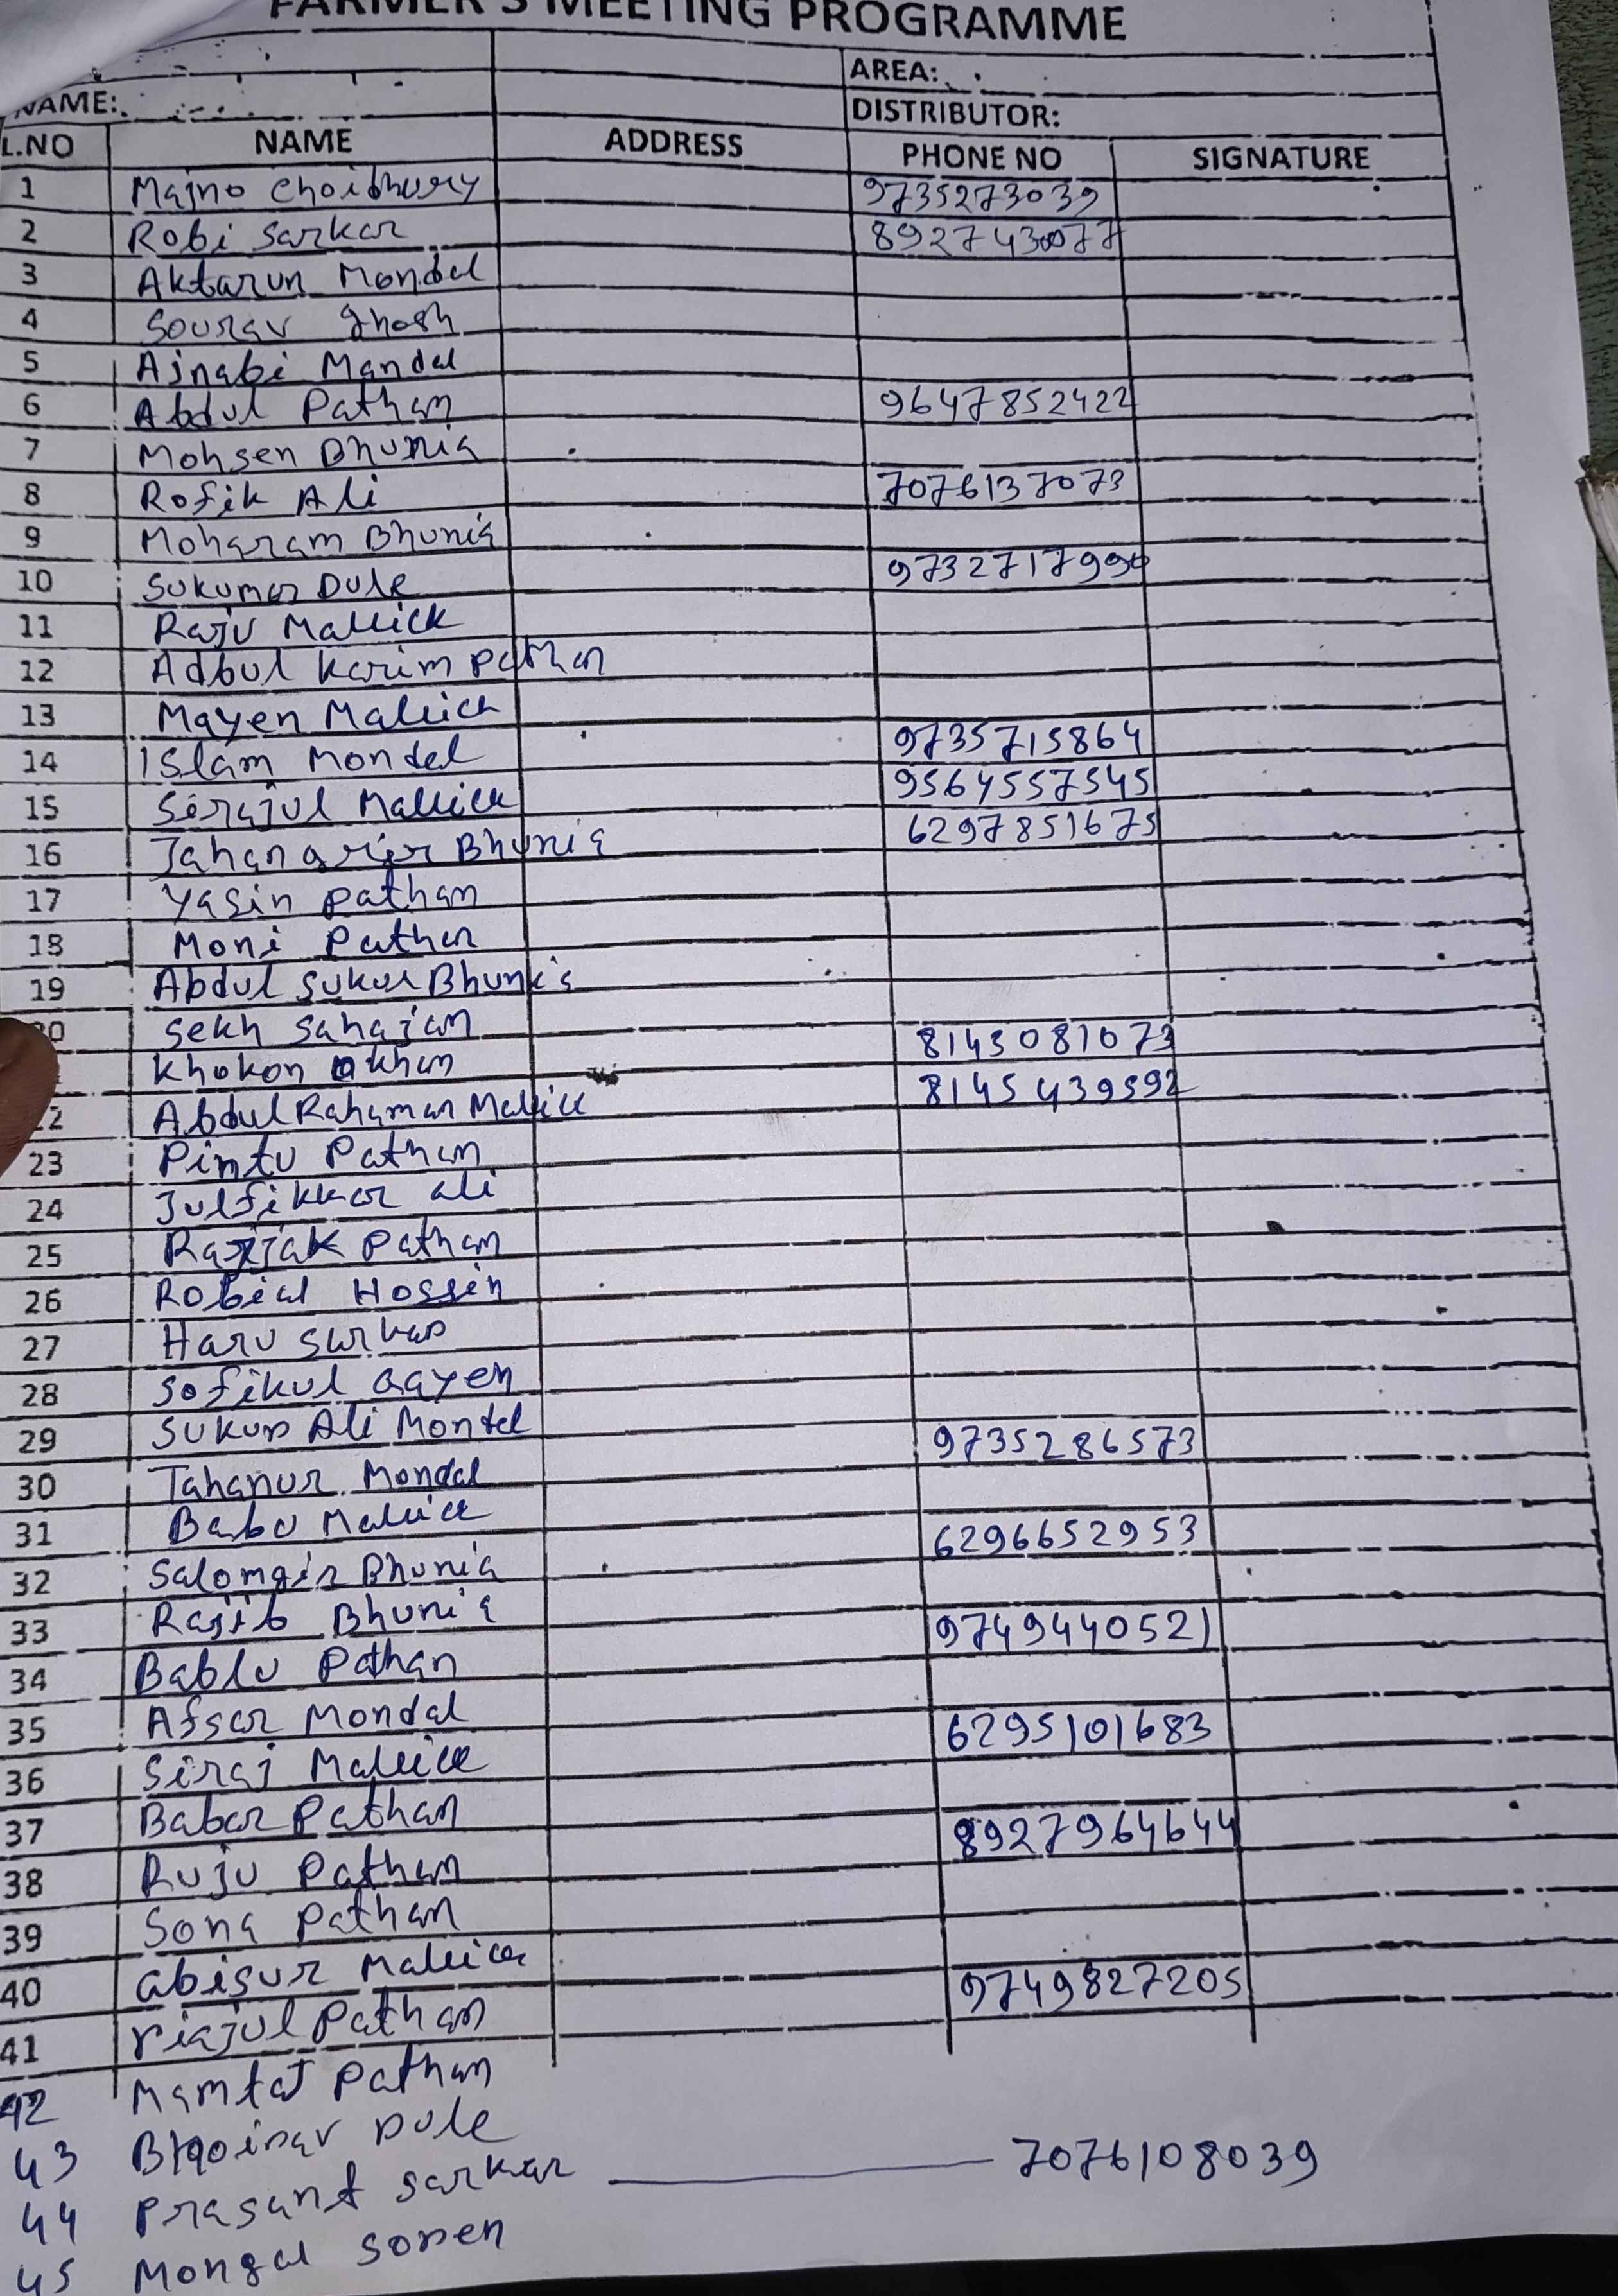 FARMER'S MEETING PROGRAMME
AREA:
NAME:
DISTRIBUTOR:
L.NO NAME ADDRESS PHONE NO SIGNATURE
1 Majno Choibhury 9735273039
2 Robi Sarkar 8927430077
3 Aktarun Mondal
4 Sourav ghosh
5 Ajnabi Mandal
6 Abdul Pathan 9647852422
7 Mohsen Bhunia
8 Rofik Ali 7076137073
9 Moharam Bhunia
10 Sukumar Dule 973271799
11 Raju Mallick
12 Adbul Karim Pathan
13 Mayen Mallick
14 Islam Mondal 9735715864
15 Serajul Mallick 9564557545
16 Jahangrir Bhunia 6297851675
17 Yasin Pathan
18 Moni Pathan
19 Abdul Sukur Bhunia
20 Sekh Sahajan 8143081673
Khokon Khan 8145439592
22 Abdul Rahaman Mallick
23 Pintu Pathan
24 Julfikkar ali
25 Razjak Pathan
26 Robial Hossin
27 Haru Sarkar
28 Sofikul Gayen
29 Sukur Ali Mondal 9735286573
30 Tahanur Mondal
31 Babu Mallick 6296652953
32 Salomgir Bhunia
33 Rajib Bhunia 9749440521
34 Bablu Pathan
35 Afsar Mondal 6295101683
36 Siraj Mallick
37 Babar Pathan 8927964644
38 Ruju Pathan
39 Sona Pathan
40 abisur Mallick 9749827205
41 riajul Pathan
42 Mamtaj Pathan
43 Dule
44 Prasant Sarkar 7076108039
45 Mongal Soren